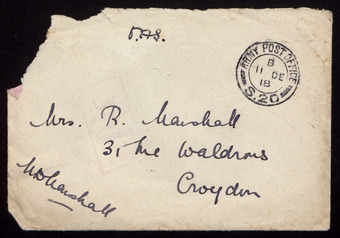 O.A.S.
ARMY POST OFFICE
B
11 DE
18
S.20
Mrs. R. Marshall
31 The Waldrons
Croydon
WDMarshall